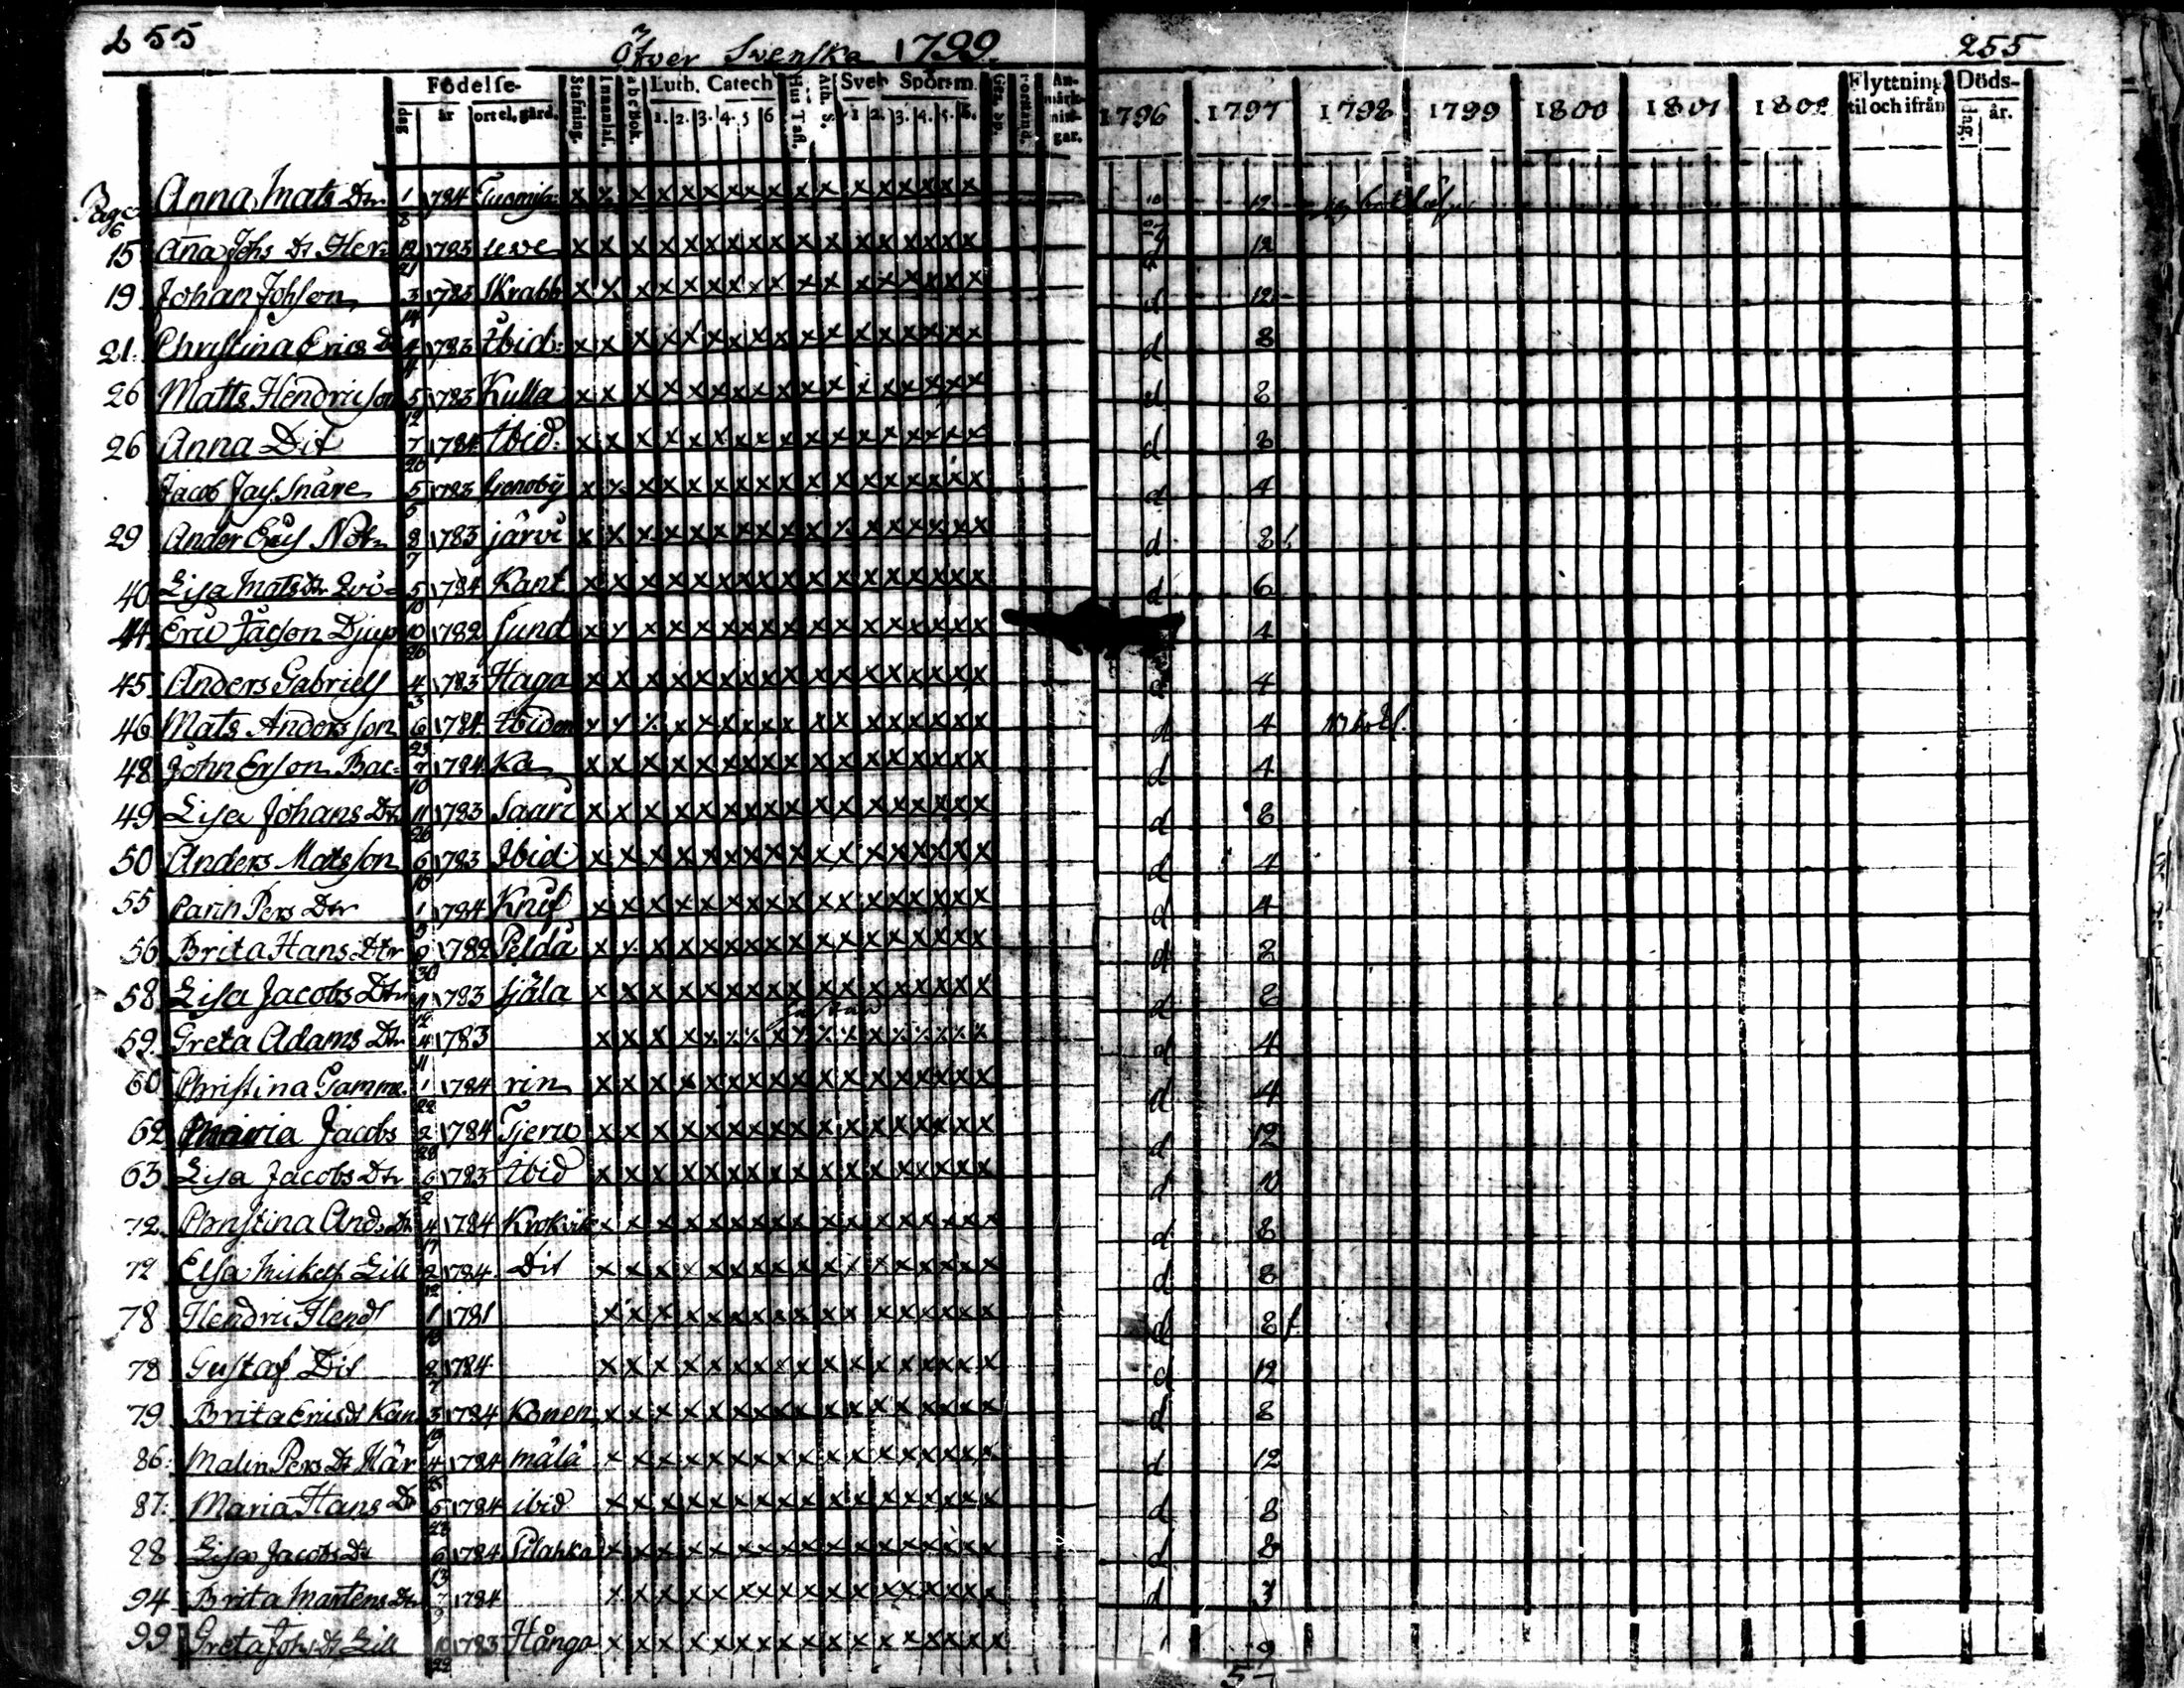 255 Öfver Svenska 1799. 255
Födelse- Stafning. Innanläs. abcBok. Luth. Catech Hus Tafl. Ath. S. Sveb Spörsm. An-märk-nin-gar. 1796 1797 1798 1799 1800 1801 1802 Flyttning til och ifrån Döds-
dag år ort el. gård. 1. 2. 3. 4. 5 6 1 2. 3. 4. 5. 6. dag. år.
Page 6 Anna Mats Dtr. 1 8 1784 x x x x x x x x x x x x x x x x x 10 12
15 Ana Johs Dr Her= 12 21 1783 leve x x x x x x x x x x x x x x x x x 12
19 Johan Johson 3 14 1783 Skrabb x x x x x x x x x x x x x x x x x d 12
21. Christina Erics D 4 1783 Ibid: x x x x x x x x x x x x x x x x x d 8
26 Matts Hendricson 5 12 1783 Kulla x x x x x x x x x x x x x x x x x d 8
26 Anna Dit 7 20 1784 Ibid: x x x x x x x x x x x x x x x x x d 8
Jacob Jacs. Snåre 5 5 1783 Genoby x x x x x x x x x x x x x x x x x d 4
29 Ander Erics Not= 8 7 1783 järvi x x x x x x x x x x x x x x x x x d 8
40 Lisa Matsdtr 5 10 1784 Kant x x x x x x x x x x x x x x x x x d 6
44 Eric Jacson Djup 10 26 1782 sund x x x x x x x x x x x x x x x x x 4
45 Anders Gabriels 4 3 1783 Haga x x x x x x x x x x x x x x x x x d 4
46 Mats Andersson 6 23 1784 Ibidem x x x x x x x x x x x x x x x x x d 4
48 John Erson Bac= 7 10 1784 Ka x x x x x x x x x x x x x x x x x d 4
49 Lisa Johans Dtr 11 26 1783 Saari x x x x x x x x x x x x x x x x x d 8
50 Anders Matsson 6 16 1783 Ibid x x x x x x x x x x x x x x x x x d 4
55 Carin Pers Dtr 1 5 1784 Knif x x x x x x x x x x x x x x x x x d 4
56 Brita Hans Dtr 9 30 1782 Peldå x x x x x x x x x x x x x x x x x d 8
58 Lisa Jacobs Dtr 11 12 1783 Sjåla x x x x x x x x x x x x x x x x x d 8
59. Greta Adams Dtr 4 11 1783 x x x x x x x x x x x x x x x x x d 4
60 Christina Gamme. 1 22 1784 rin x x x x x x x x x x x x x x x x x d 4
62 Maria Jacobs 2 28 1784 Tjerw x x x x x x x x x x x x x x x x x d 12
63 Lisa Jacobs Dtr 6 2 1783 Ibid x x x x x x x x x x x x x x x x x d 10
72 Christina Ands. Dr 4 17 1784 Krokvik x x x x x x x x x x x x x x x x x d 8
72 Elsa Mickels Lill 2 12 1784 Dit x x x x x x x x x x x x x x x x x d 8
78 Hendric Hends 1 18 1781 x x x x x x x x x x x x x x x x x d 8
78 Gustaf Dit 2 7 1784 x x x x x x x x x x x x x x x x x d 12
79 Brita Ericsdr Kan 3 19 1784 Konen x x x x x x x x x x x x x x x x x d 8
86: Malin Pers Dr Här 4 1784 målå x x x x x x x x x x x x x x x x x d 12
87: Maria Hans Dr 5 28 1784 ibid x x x x x x x x x x x x x x x x x d 8
88 Lisa Jacobs Dr 6 13 1784 Pilahka x x x x x x x x x x x x x x x x x d 8
94 Brita Martens Dr 7 1784 x x x x x x x x x x x x x x x x x d
99 Greta Johs Dr Lill 10 29 1783 Hånga x x x x x x x x x x x x x x x x x